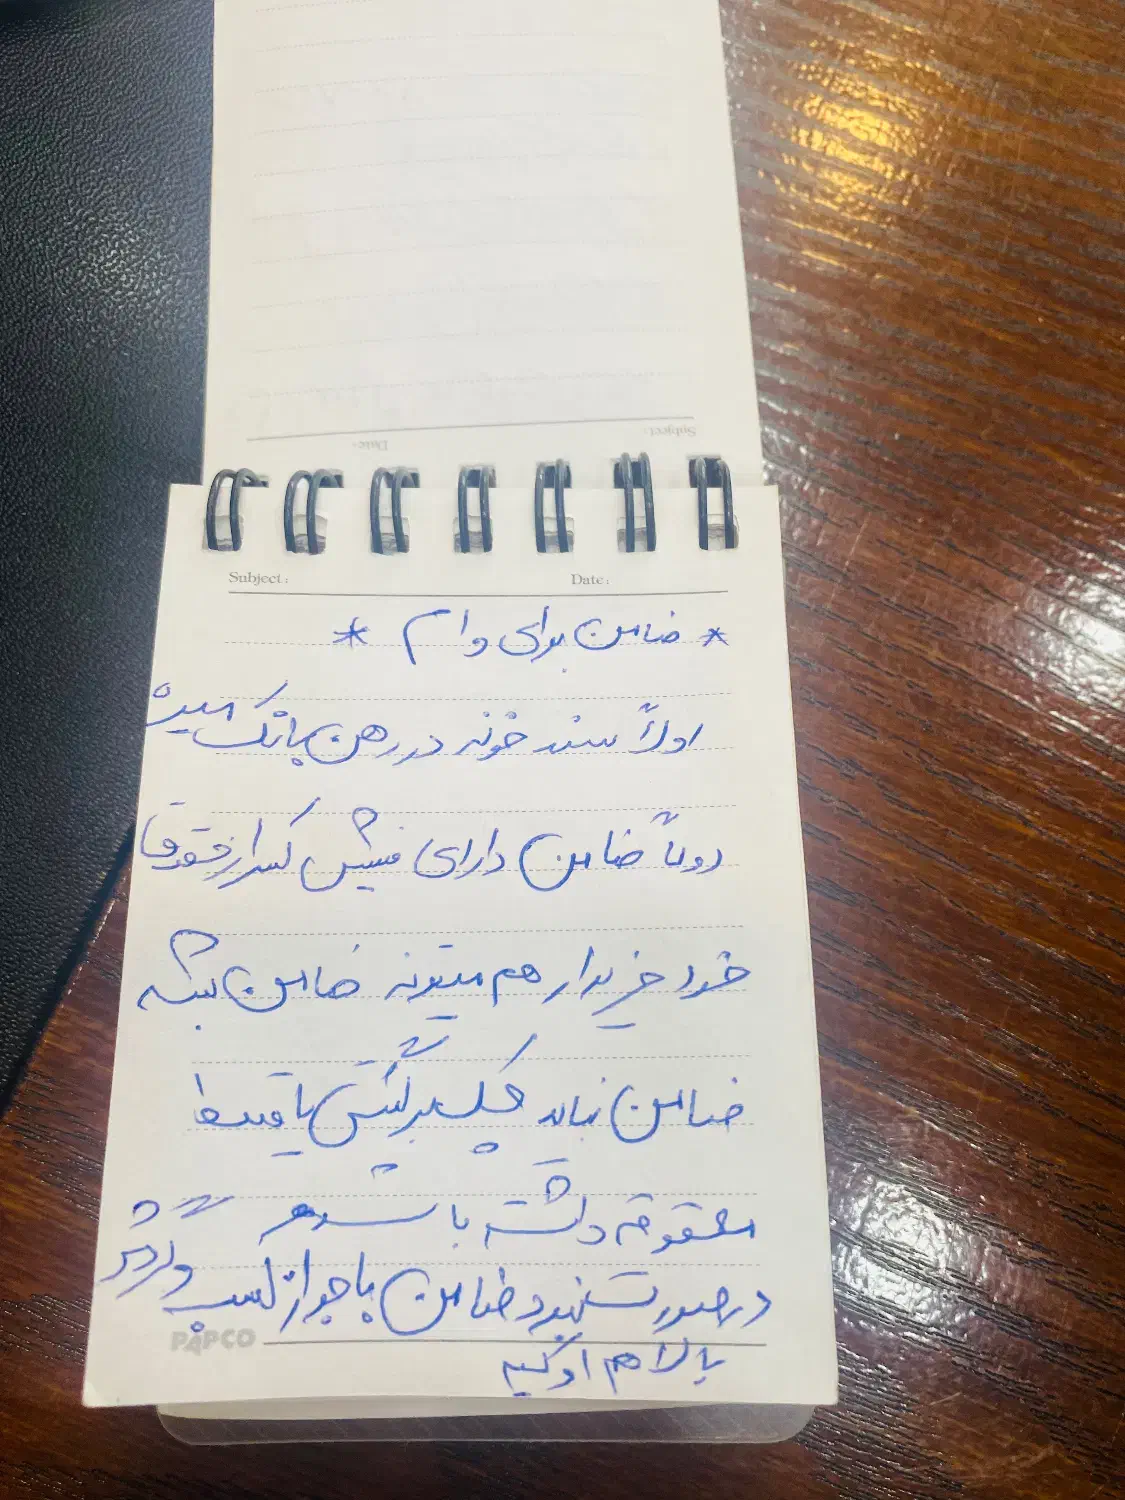 Subject:
Date:
Subject:
Date:
* ضامن برای وام *
اولاً سند خونه در رهن بانک میره
دوماً ضامن دارای فیش کسر از حقوق
خود خریدار هم میتونه ضامن بشه
ضامن نباید چک برگشتی یا قسط
معوقه داشته باشد
در صورت نبود ضامن با جواز کسب و گردش
بالا هم اوکیه
PAPCO